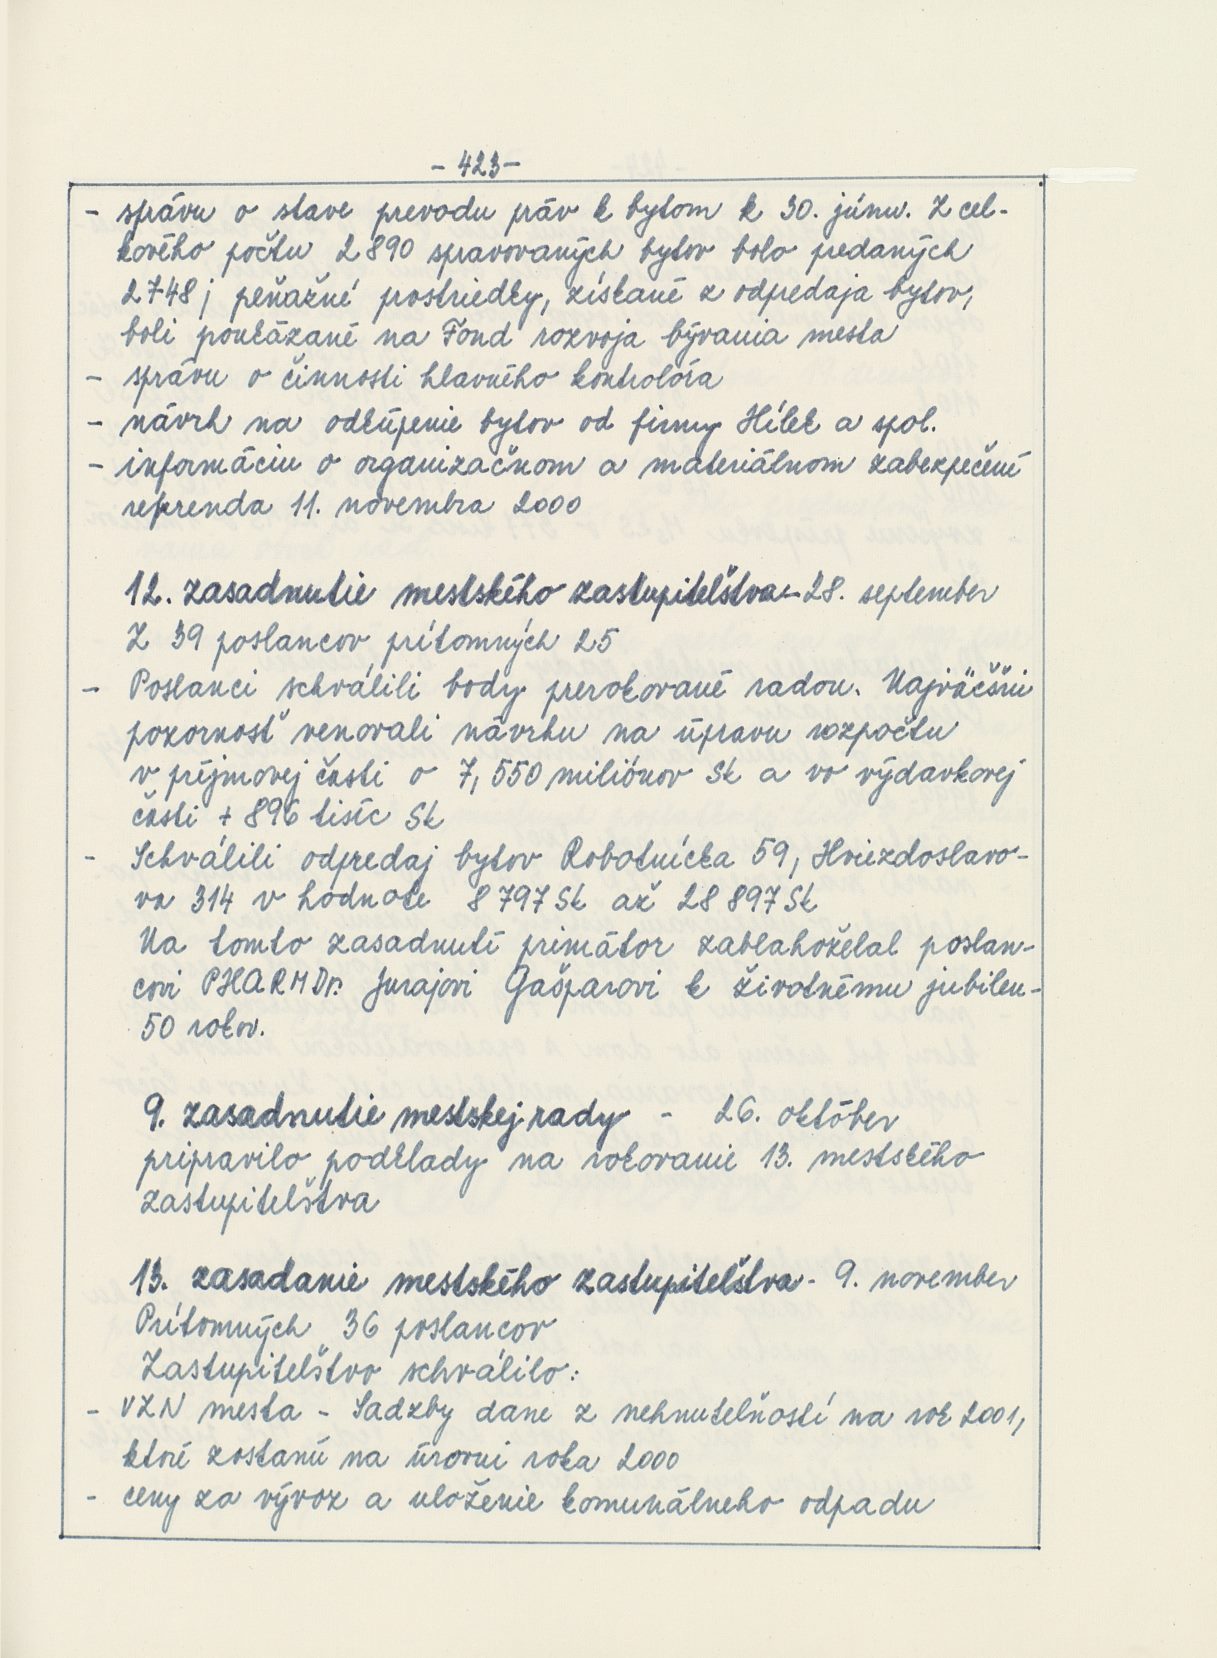 - 423 -
- správu o stave prevodu práv k bytom k 30. júnu. Z cel-
kového počtu 2 890 spravovaných bytov bolo predaných
2748; peňažné prostriedky, získané z odpredaja bytov,
boli poukázané na Fond rozvoja bývania mesta
- správu o činnosti hlavného kontrolóra
- návrh na odkúpenie bytov od firmy Hílek a spol.
- informáciu o organizačnom a materiálnom zabezpečení
referenda 11. novembra 2000
12. zasadnutie mestského zastupiteľstva - 28. september
Z 39 poslancov prítomných 25
- Poslanci schválili body prerokované radou. Najväčšiu
pozornosť venovali návrhu na úpravu rozpočtu
v príjmovej časti o 7,550 miliónov Sk a vo výdavkovej
časti + 896 tisíc Sk
- Schválili odpredaj bytov Robotnícka 59, Hviezdoslavo-
va 314 v hodnote 8 797 Sk až 28 897 Sk
Na tomto zasadnutí primátor zablahoželal poslan-
covi PHARMDr. Jurajovi Gašparovi k životnému jubileu -
50 rokov.
9. zasadnutie mestskej rady - 26. október
pripravilo podklady na rokovanie 13. mestského
zastupiteľstva
13. zasadanie mestského zastupiteľstva - 9. november
Prítomných 36 poslancov
Zastupiteľstvo schválilo:
- VZN mesta - Sadzby dane z nehnuteľností na rok 2001,
ktoré zostanú na úrovni roka 2000
- ceny za vývoz a uloženie komunálneho odpadu